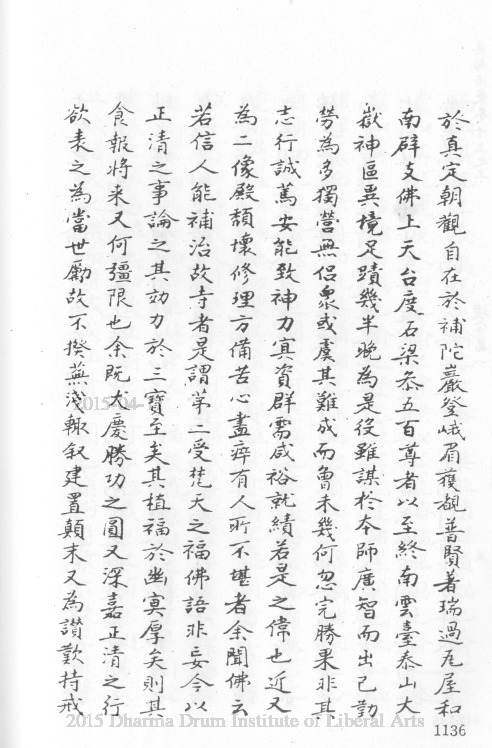 於真定朝觀自在於補陀巖登峨眉獲覩普賢著瑞過尾屋和
南辟支佛上天台度石梁叅五百尊者以至終南雲臺泰山大
嶽神區異境足蹟幾半晚為是役雖謀於本師廣智而出己勤
勞為多獨營無侶衆或虞其難成而曾未幾何忽完勝果非其
志行誠篤安能致神力冥資群需咸裕就績若是之偉也近又
為二像殿頹壞修理方備苦心盡瘁有人所不堪者余聞佛云
若信人能補治故寺者是謂第二受梵天之福佛語非妄今以
正清之事論之其効力於三寶至矣其植福於幽冥厚矣則其
食報将来又何彊限也余既大慶勝功之圓又深嘉正清之行
欲表之為當世勵故不揆蕪淺輙叙建置顛末又為讃歎持戒
2015-04-
2015 Dharma Drum Institute of Liberal Arts
1136